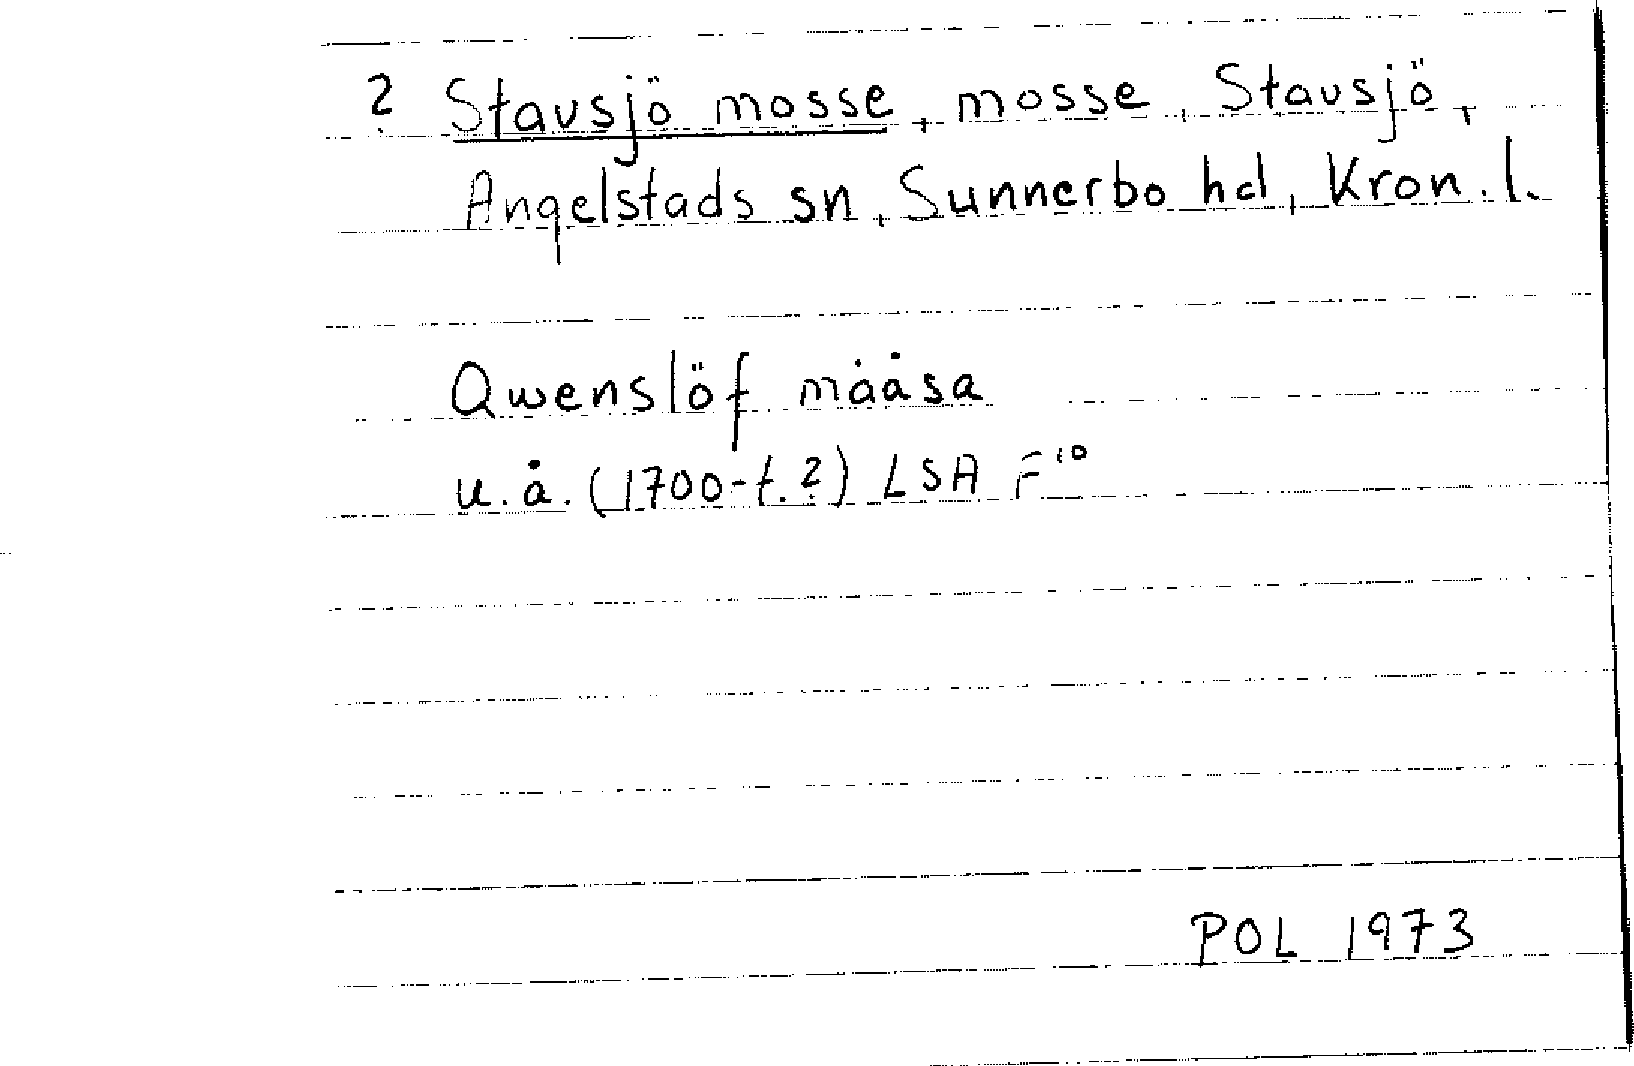 ? Stavsjö mosse, mosse, Stavsjö,
Angelstads sn, Sunnerbo hd, Kron. l.
Qwenslöf måâsa
u.å. (1700-t.?) LSA F¹⁰
POL 1973